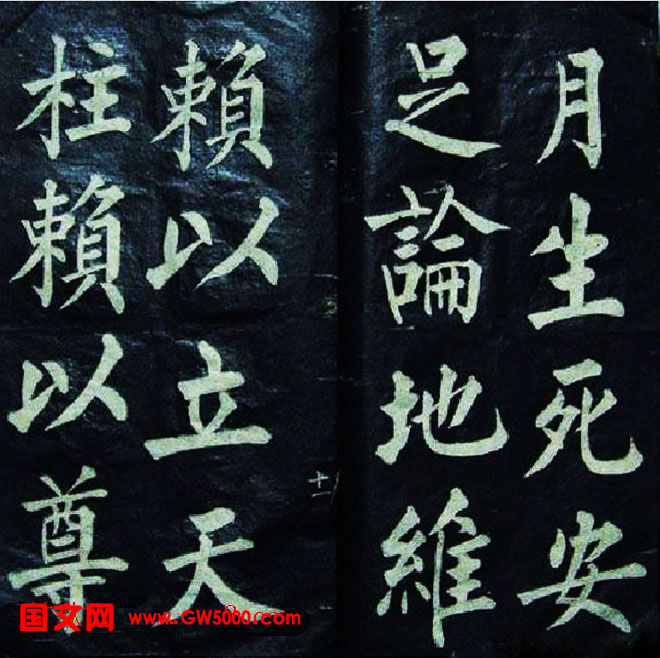 月生死安
足論地維
賴以立天
柱賴以尊
十二
国文网 www.GW5000.com